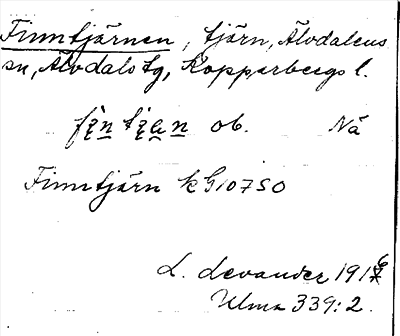 Finntjärnen, tjärn, Älvdalens
sn, Älvdals tg, Kopparbergs l.
ob. Nä
Finntjärn k G10750
L. Levander 1916
Ulma 339:2.